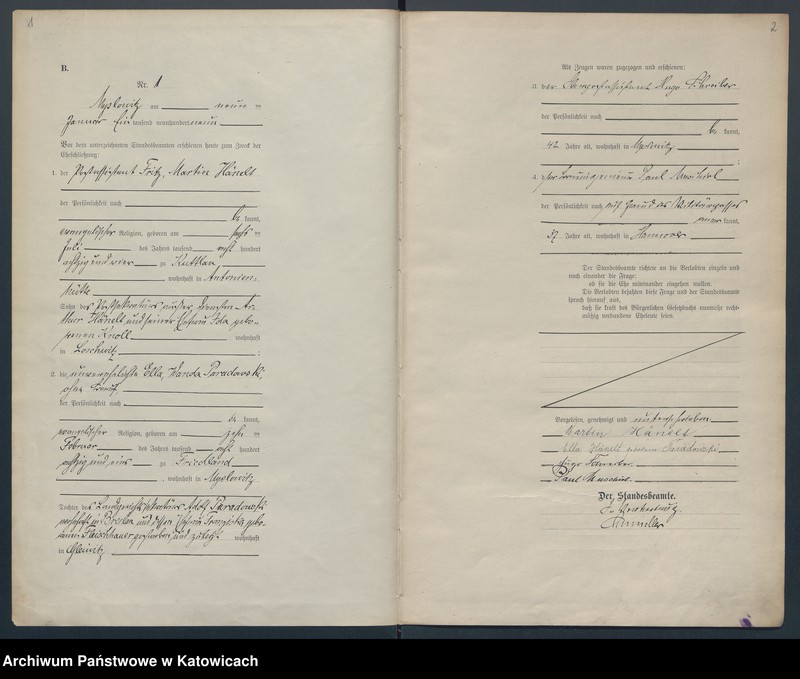 1
B.
Nr. 1
Myslowitz am neun ten
Januar Ein tausend neunhundert neun
Vor dem unterzeichneten Standesbeamten erschienen heute zum Zweck der
Eheschließung:
1. der Postassistent Fritz, Martin Hänelt
der Persönlichkeit nach
be kannt,
evangelischer Religion, geboren am sechs ten
Juli des Jahres tausend acht hundert
achtzig und vier zu Kuttlau
, wohnhaft in Antonien-
hütte
Sohn des Postsekretärs außer Diensten Ar-
thur Hänelt und seiner Ehefrau Ida gebo-
renen Knoll wohnhaft
in Loschwitz
2. die unverehelichte Ella, Wanda Paradowski,
ohne Beruf
der Persönlichkeit nach
be kannt,
evangelischer Religion, geboren am zehn ten
Februar des Jahres tausend acht hundert
achtzig und eins zu Friedland
, wohnhaft in Myslowitz
Tochter des Landgerichtssekretärs Adolf Paradowski
in Breslau, und dessen Ehefrau Franziska gebo-
renen Fleischhauer, gestorben und zuletzt wohnhaft
in Gleiwitz
2
Als Zeugen waren zugezogen und erschienen:
3. der Hugo Schreiber
der Persönlichkeit nach
be kannt,
42 Jahre alt, wohnhaft in Myslowitz
4. der Paul
der Persönlichkeit nach auf Grund des Militärpasses
aner kannt,
37 Jahre alt, wohnhaft in Hannover
Der Standesbeamte richtete an die Verlobten einzeln und
nach einander die Frage:
ob sie die Ehe miteinander eingehen wollen.
Die Verlobten bejahten diese Frage und der Standesbeamte
sprach hierauf aus,
daß sie kraft des Bürgerlichen Gesetzbuchs nunmehr recht-
mäßig verbundene Eheleute seien.
Vorgelesen, genehmigt und unterschrieben
Martin Hänelt
Ella Hänelt geborene Paradowski
Hugo Schreiber
Paul
Der Standesbeamte.
In Vertretung
Archiwum Państwowe w Katowicach